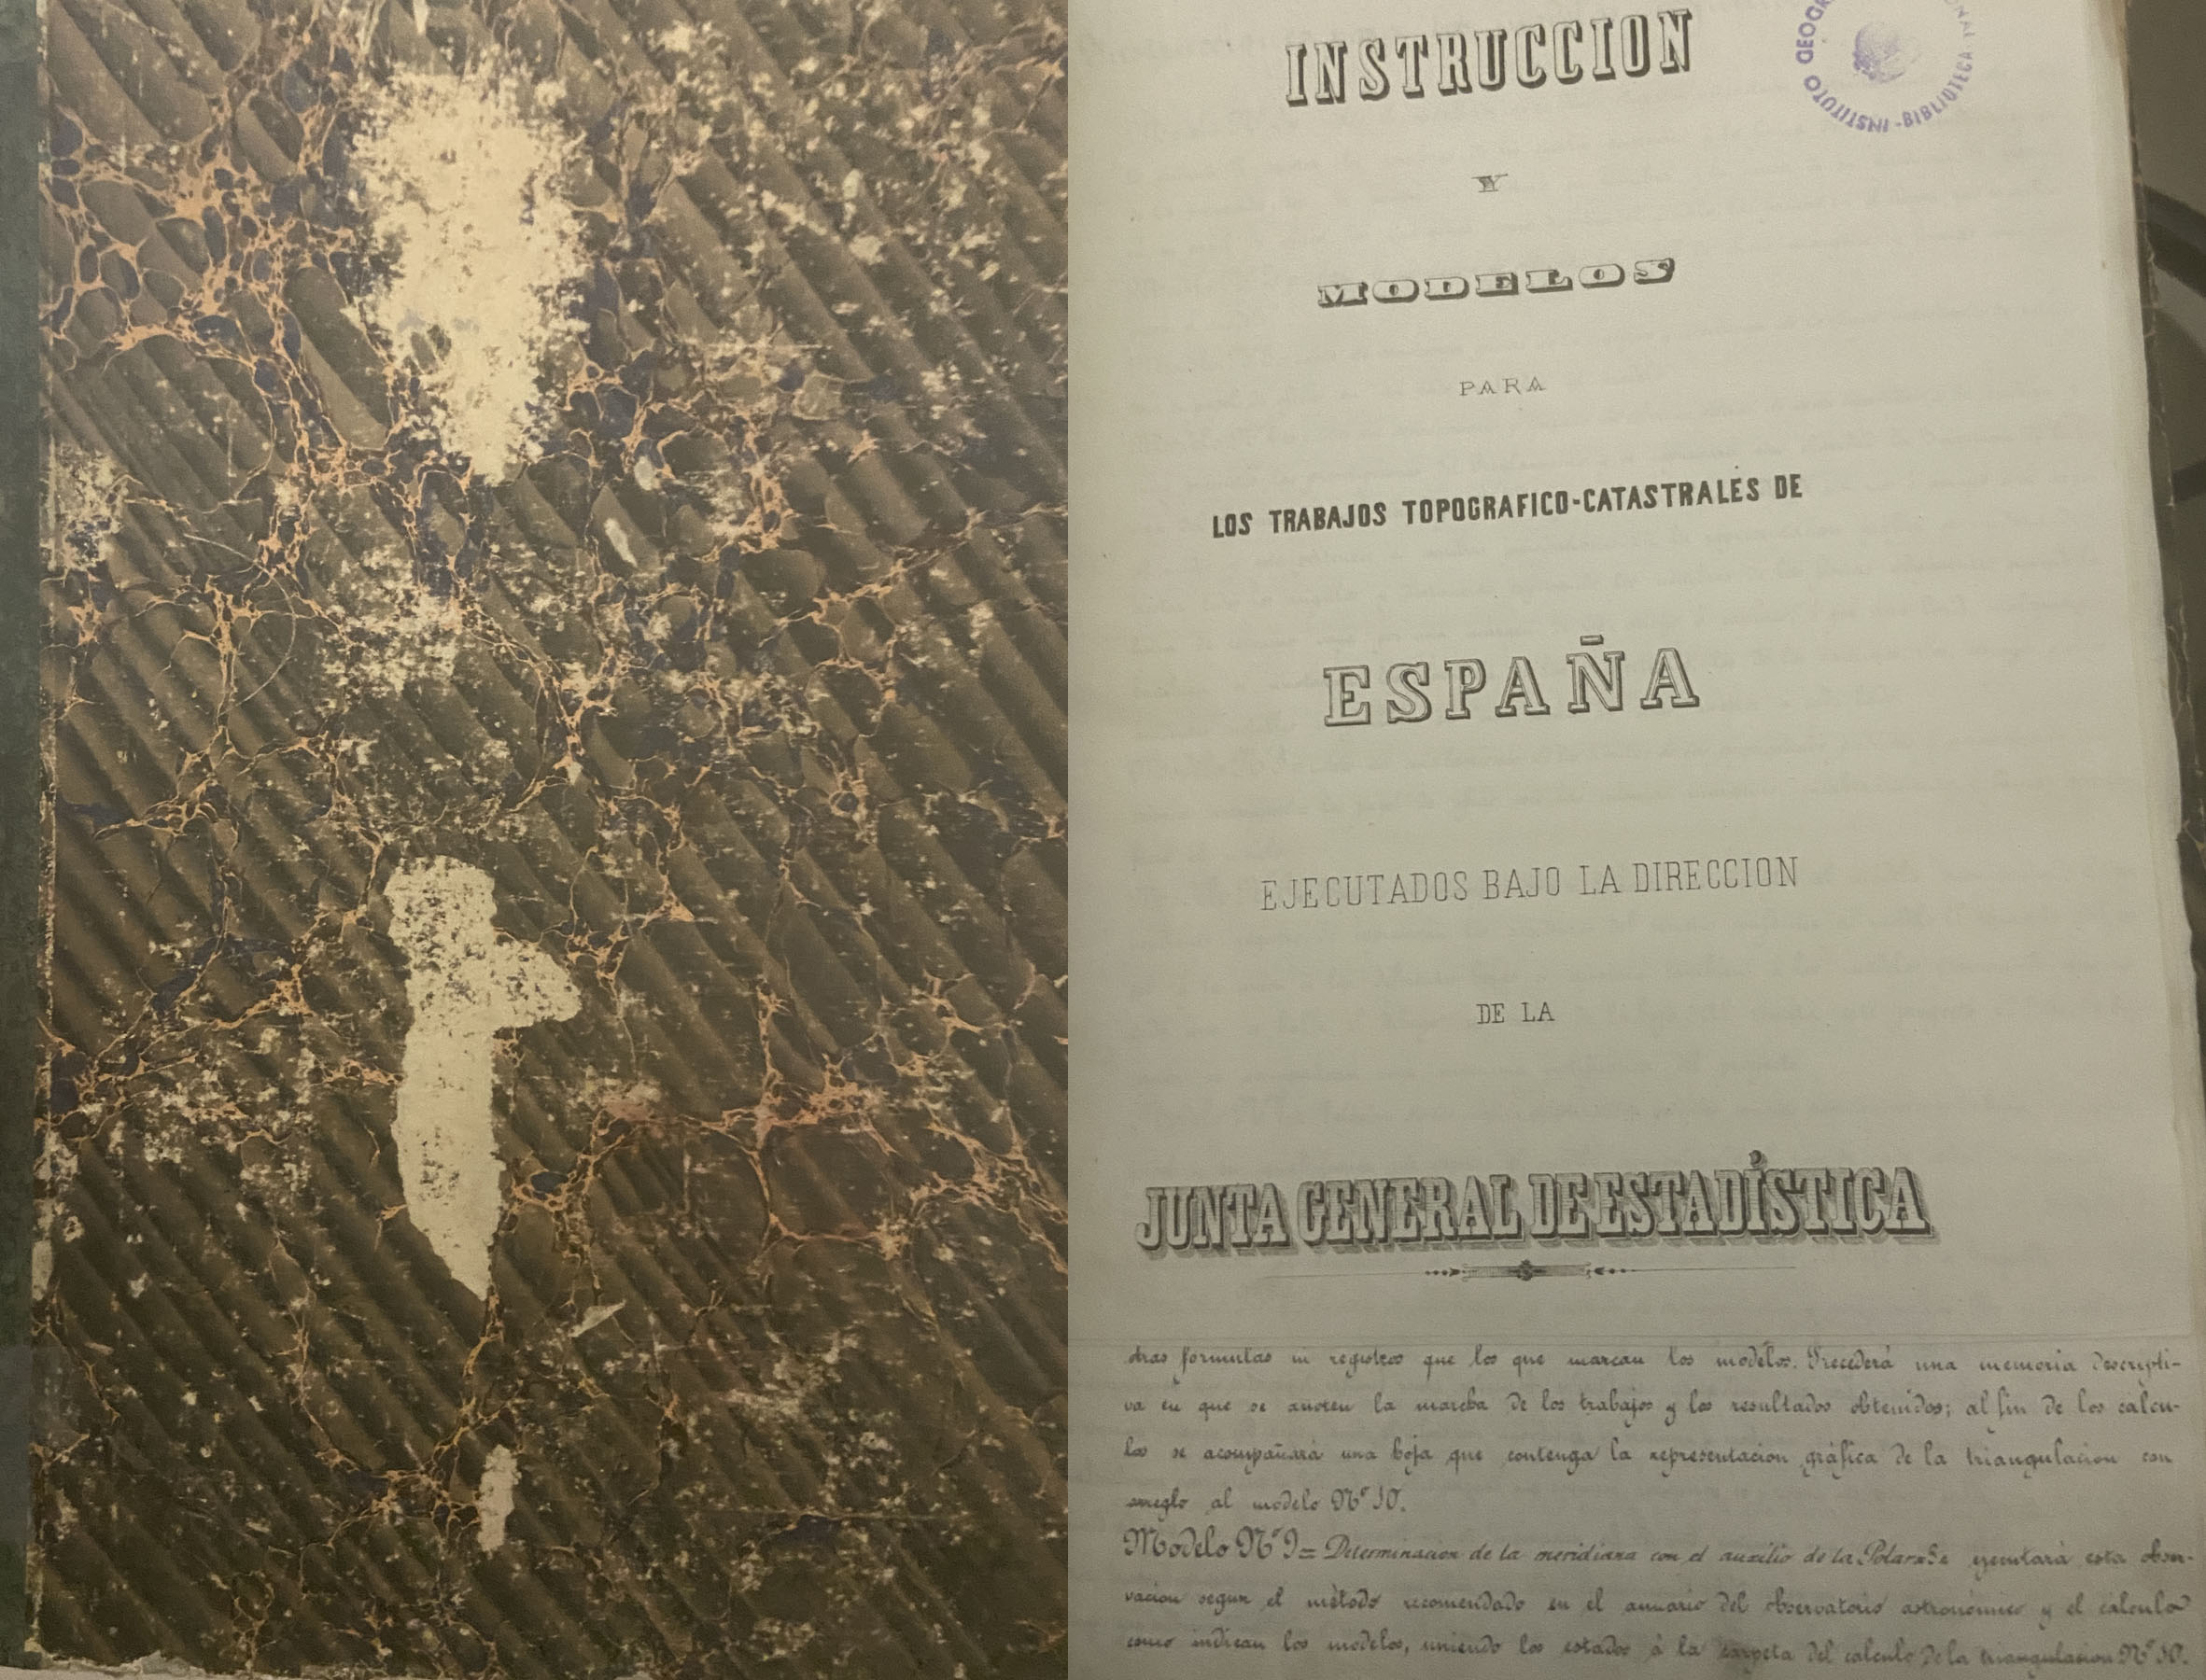 INSTITUTO GEOGR
BIBLIOTECA
INSTRUCCION
Y
MODELOS
PARA
LOS TRABAJOS TOPOGRAFICO-CATASTRALES DE
ESPAÑA
EJECUTADOS BAJO LA DIRECCION
DE LA
JUNTA GENERAL DE ESTADÍSTICA
otras formulas ni registros que los que marcan los modelos. Precederá una memoria descripti-
va en que se anoten la marcha de los trabajos y los resultados obtenidos; al fin de los calcu-
los se acompañará una hoja que contenga la representacion gráfica de la triangulacion con
arreglo al modelo Nº 10.
Modelo Nº 1 = Determinacion de la meridiana con el auxilio de la Polar = Se ejecutará esta obser-
vacion segun el método recomendado en el anuario del observatorio astronómico y el calculo
como indican los modelos, uniendo los estados á la carpeta del calculo de la triangulacion Nº 10.